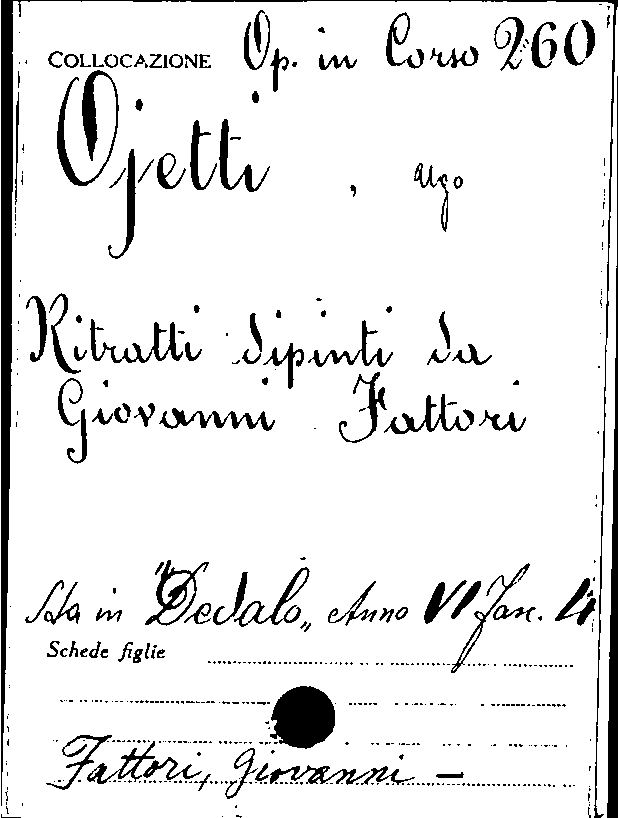 COLLOCAZIONE Op. in Corso 260
Ojetti, Ugo
Ritratti dipinti da
Giovanni Fattori
Sta in "Dedalo„ Anno VI Fasc. 4
Schede figlie
Fattori, Giovanni —